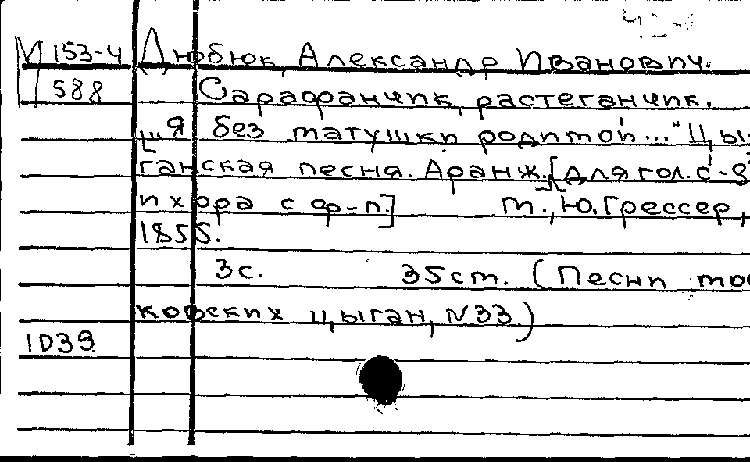 М 153-4 Дюбюк, Александр Иванович.
588 Сарафанчик, растеганчик.
"Я без матушки родимой..." Цы-
ганская песня. Аранж. [для гол. с-
и хора с ф-п.] М., Ю. Грессер,
1855.
3с. 35ст. (Песни мос
ковских цыган, N33)
1D39